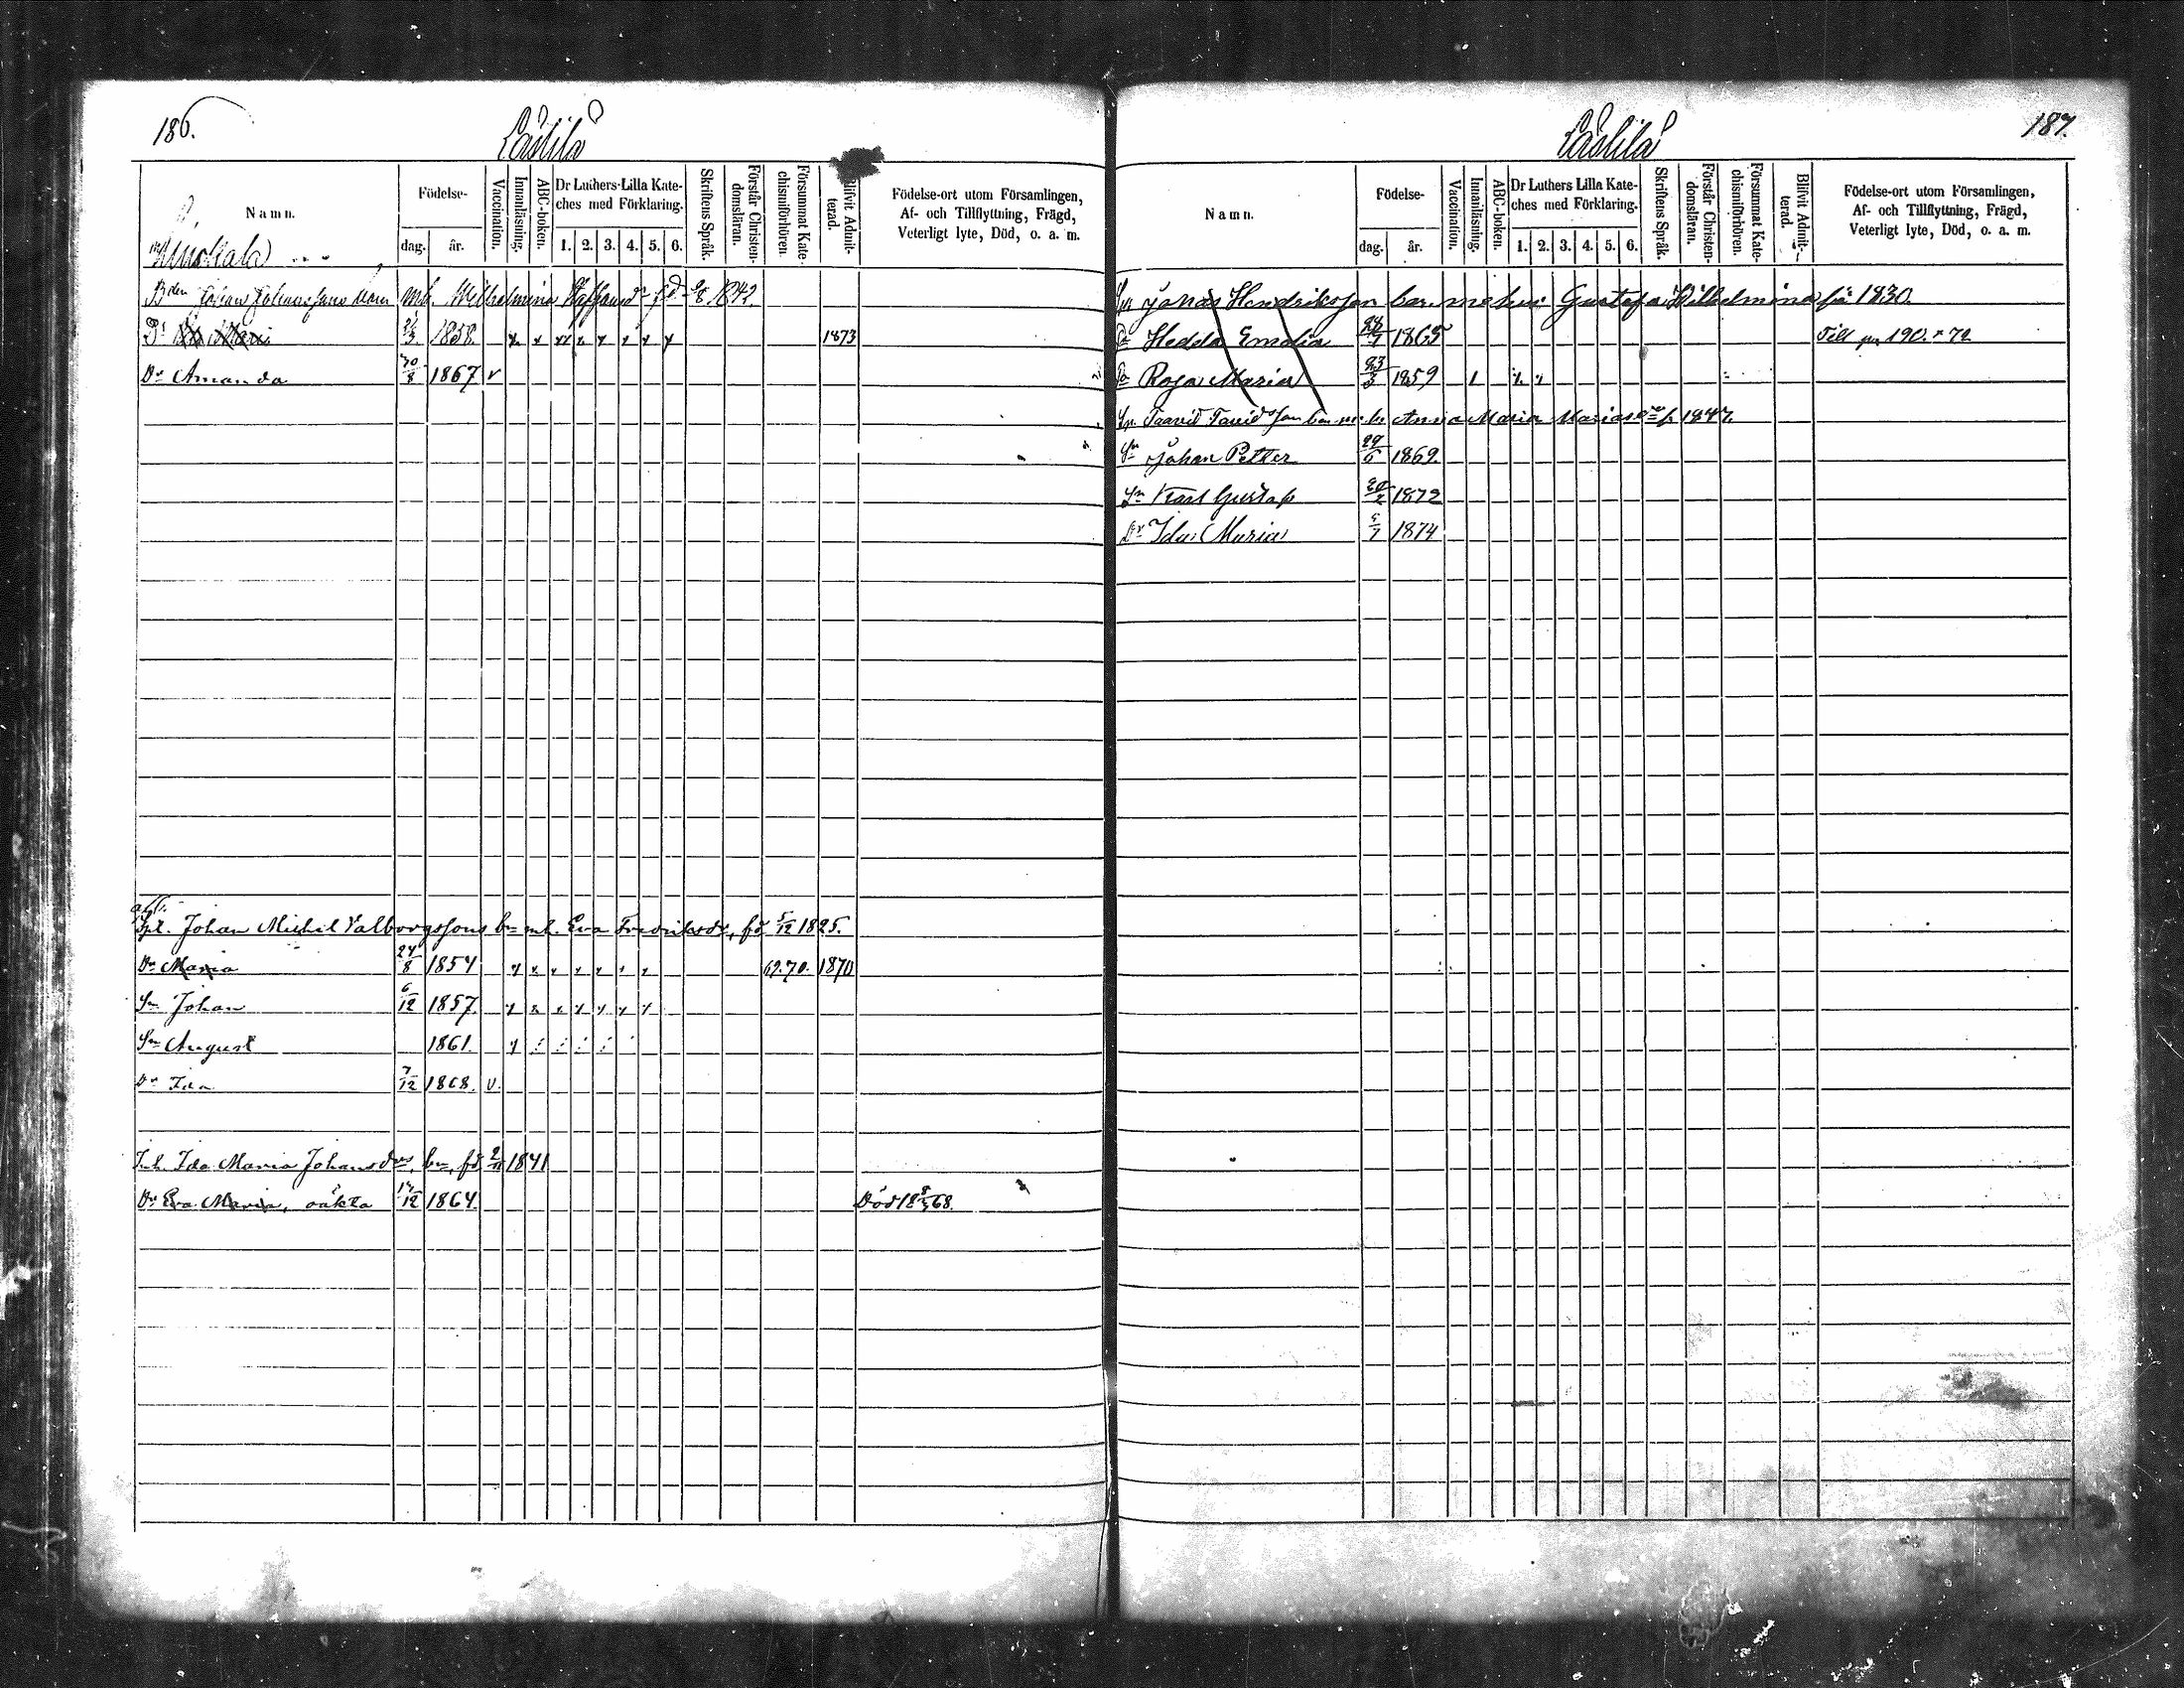 186.
Lästilä
Namn.
Födelse-
dag. år.
Vaccination.
Innanläsning.
ABC-boken.
Dr Luthers Lilla Kate-
ches med Förklaring.
1. 2. 3. 4. 5. 6.
Skriftens Språk.
Förstår Christen-
domsläran.
Försummat Kate-
chismiförhören.
Blifvit Admit-
terad.
Födelse-ort utom Församlingen,
Af- och Tillflyttning, Frägd,
Veterligt lyte, Död, o. a. m.
Johan Johanssons barn mh. Wilhelmina 1842.
1858 1873
Dr Amanda 30/8 1867 v
Johan Michel Valborgssons bn mh. Eva Fredriksdr, fö 5/12 1825.
Dr Maria 24/8 1854 69.70. 1870
Sn Johan 6/12 1857.
Sn August 1861.
Dr Ida 7/12 1868. v.
Inh. Ida Maria Johansdrs, bn, fö 1841
Dr Eva Maria, oäkta 1864. Död 68.
187.
Lästilä
Namn.
Födelse-
dag. år.
Vaccination.
Innanläsning.
ABC-boken.
Dr Luthers Lilla Kate-
ches med Förklaring.
1. 2. 3. 4. 5. 6.
Skriftens Språk.
Förstår Christen-
domsläran.
Försummat Kate-
chismiförhören.
Blifvit Admit-
terad.
Födelse-ort utom Församlingen,
Af- och Tillflyttning, Frägd,
Veterligt lyte, Död, o. a. m.
Jonas Hendriksson bar. m Gustafva Wilhelmina fö 1830.
Hedda 1865 Till 190. 72
Rosa Maria 23/3 1859
Taavid Tavidsson bar. m. h. Anna Maria f. 1847.
Sn Johan Petter 29/6 1869.
Sn Karl Gustaf 1872
Dr Ida Maria 5/7 1874